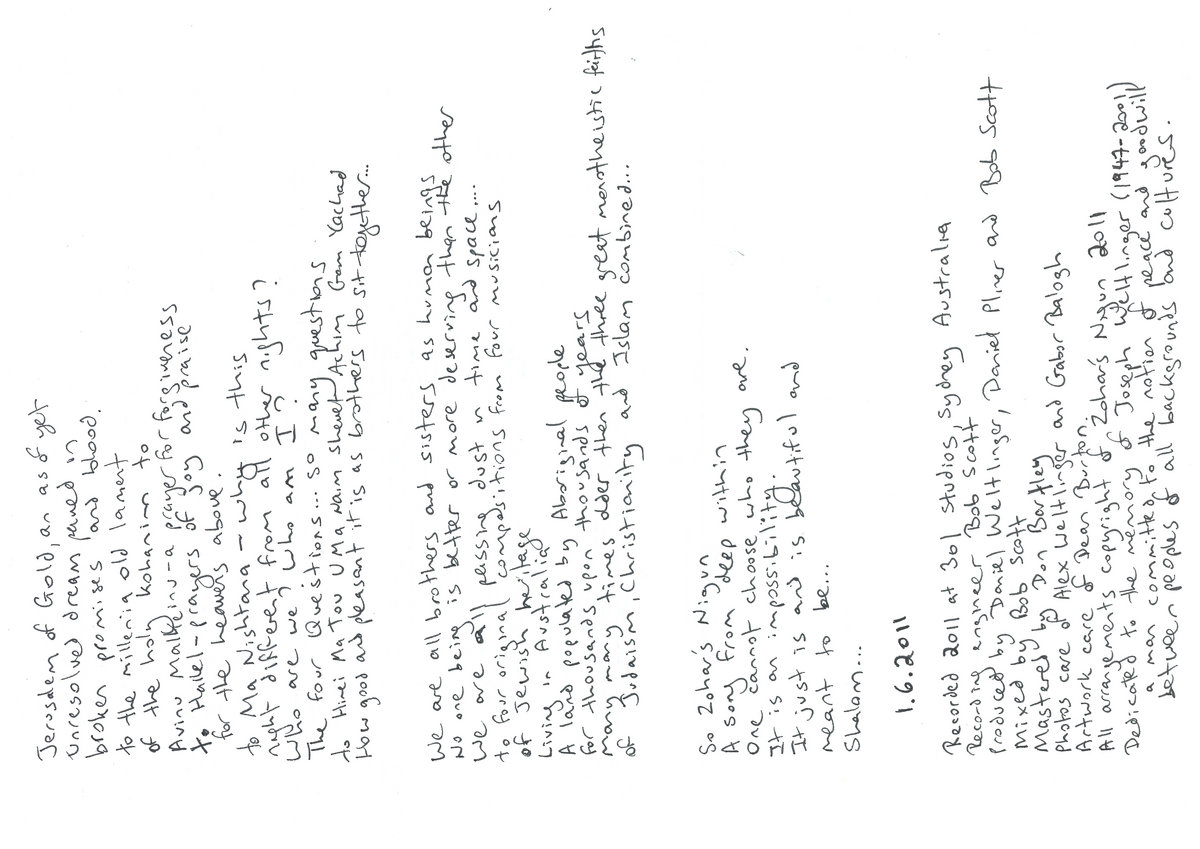 Jerusalem of Gold, an as of yet
unresolved dream paved in
broken promises and blood.
to the millenia old lament
of the holy kohanim to
Avinu Malkeinu - a prayer for forgiveness
to Hallel - prayers of joy and praise
for the heavens above.
to Ma Nishtana - why is this
night different from all other nights?
Who are we, who am I?
The four Questions... so many questions
to Hinei Ma Tov U Ma Naim shevet Achim Gam Yachad
How good and pleasant it is as brothers to sit together...
We are all brothers and sisters as human beings
No one being is better or more deserving than the other
We are all passing dust in time and space....
to four original compositions from four musicians
of Jewish heritage
Living in Australia
A land populated by Aboriginal people
for thousands upon thousands of years
many many times older then the three great monotheistic faiths
of Judaism, Christianity and Islam combined...
So Zohar's Nigun
A song from deep within
One cannot choose who they are.
It is an impossibility.
It just is and is beautiful and
meant to be...
Shalom...
1.6.2011
Recorded 2011 at 301 studios, Sydney Australia
Recording engineer Bob Scott
Produced by Daniel Weltlinger, Daniel Pliner and Bob Scott
Mixed by Bob Scott
Mastered by Don Bartley
Photos care of Alex Weltlinger and Gabor Balogh
Artwork care of Dean Burton.
All arrangements copyright of Zohar's Nigun 2011
Dedicated to the memory of Joseph Weltlinger (1947-2001)
a man committed to the notion of peace and goodwill
between peoples of all backgrounds and cultures.